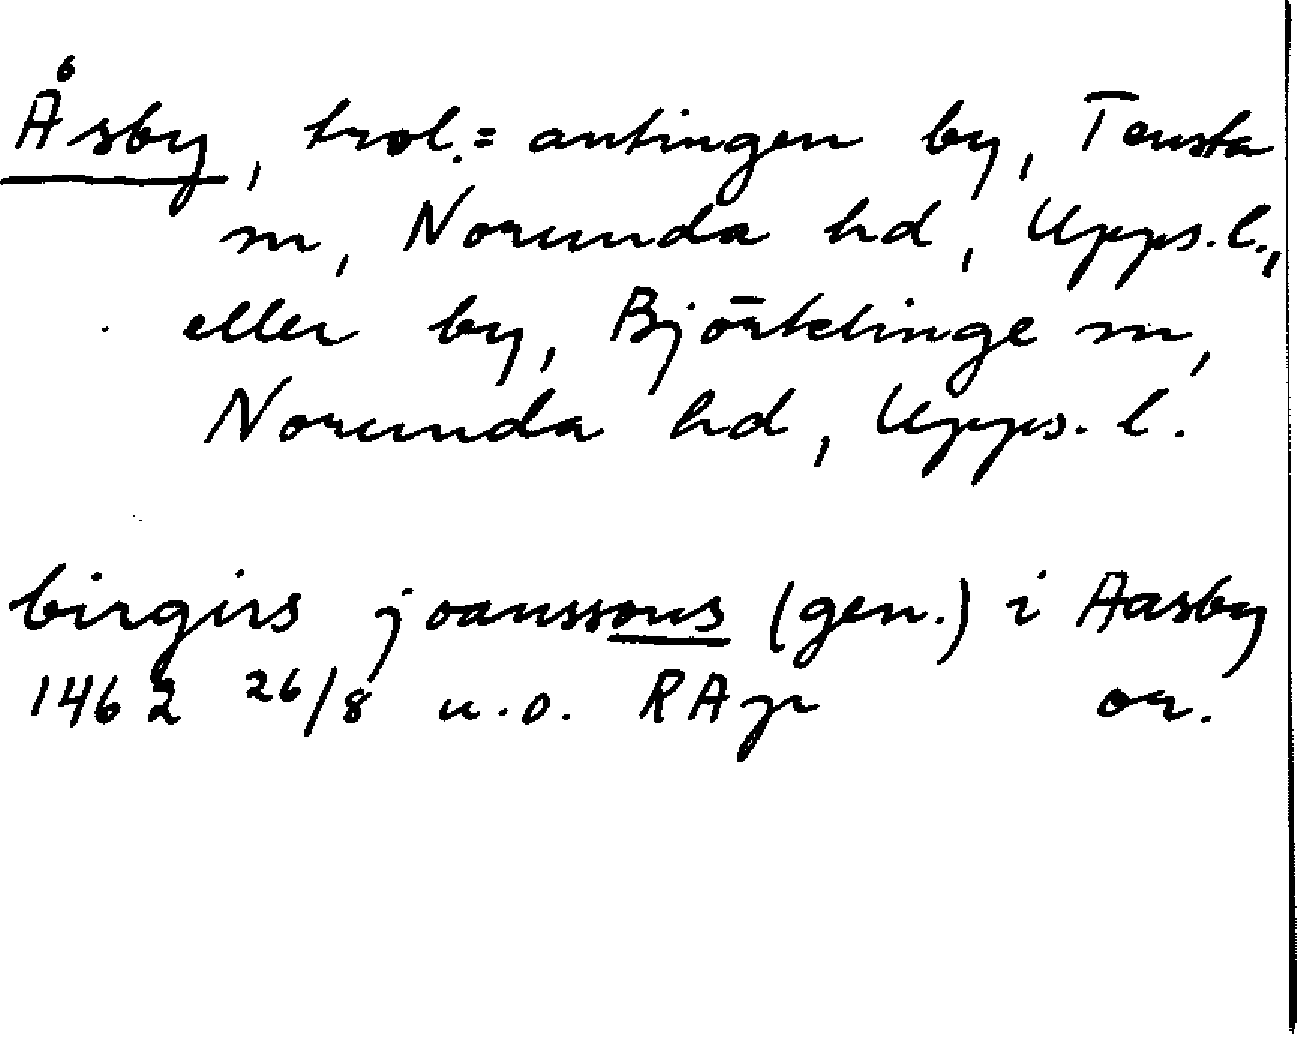 Åsby, trol. = antingen by, Tensta
sn, Norunda hd, Upps. l.,
eller by, Björklinge sn,
Norunda hd, Upps. l.
birgirs joanssons (gen.) i Aasby
1462 26/8 u.o. RAp or.